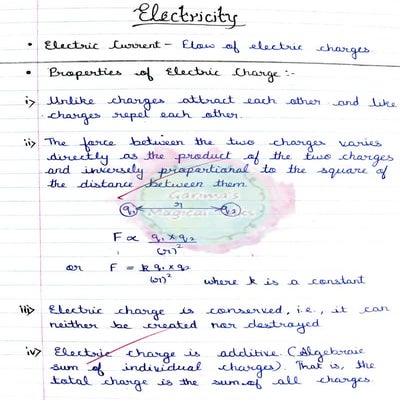 Electricity
• Electric Current - Flow of electric charges
• Properties of Electric Charge :-
i) Unlike charges attract each other and like
charges repel each other.
ii) The force between the two charges varies
directly as the product of the two charges
and inversely proportional to the square of
the distance between them.
Garima's
Magical
q₁ r q₂
F ∝ q₁ × q₂ / (r)²
or F = k q₁ × q₂ / (r)² where k is a constant
iii) Electric charge is conserved, i.e., it can
neither be created nor destroyed.
iv) Electric charge is additive (Algebraic
sum of individual charges). That is, the
total charge is the sum of all charges.